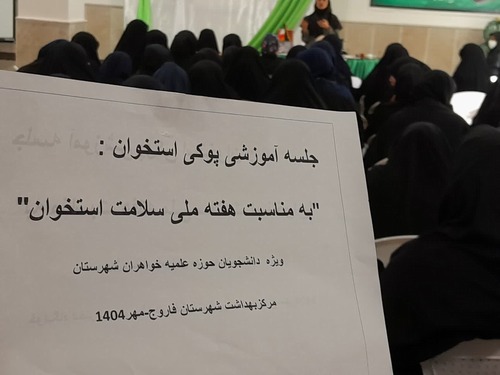 جلسه آموزشی پوکی استخوان :
"به مناسبت هفته ملی سلامت استخوان"
ویژه دانشجویان حوزه علمیه خواهران شهرستان
مرکزبهداشت شهرستان فاروج-مهر1404